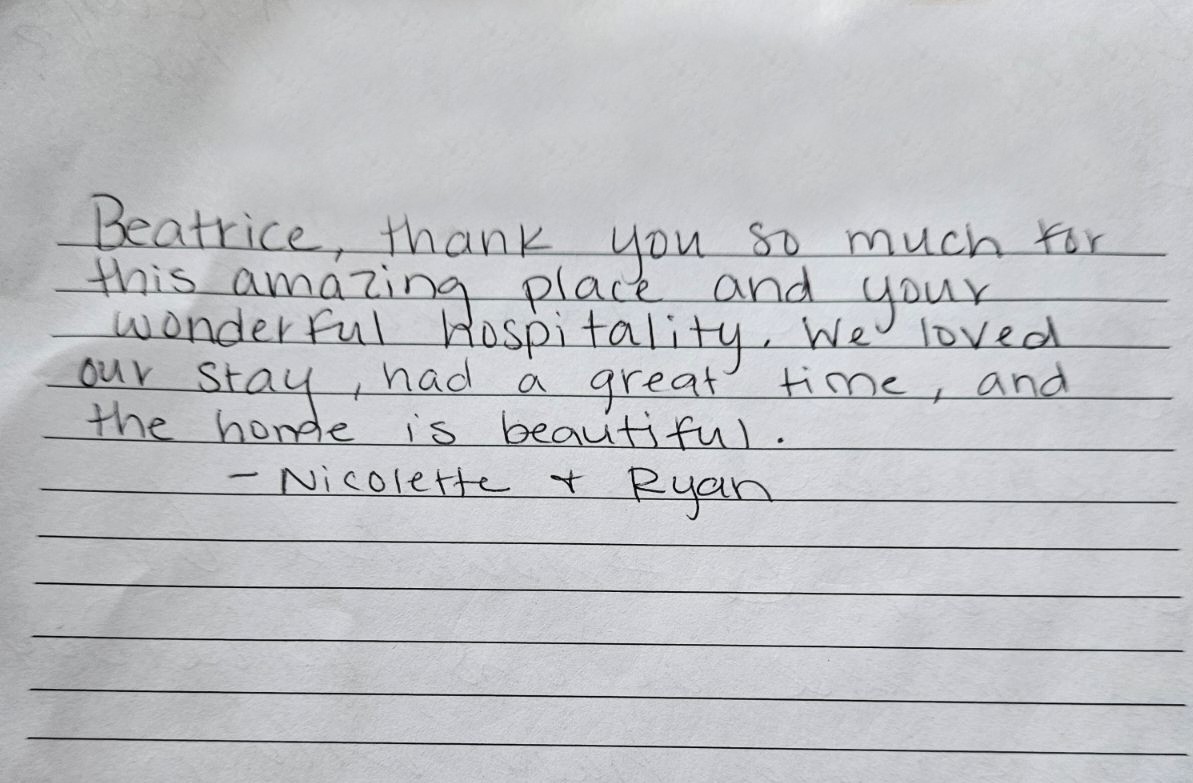 Beatrice, thank you so much for
this amazing place and your
wonderful hospitality. We loved
our stay, had a great time, and
the home is beautiful.
- Nicolette + Ryan